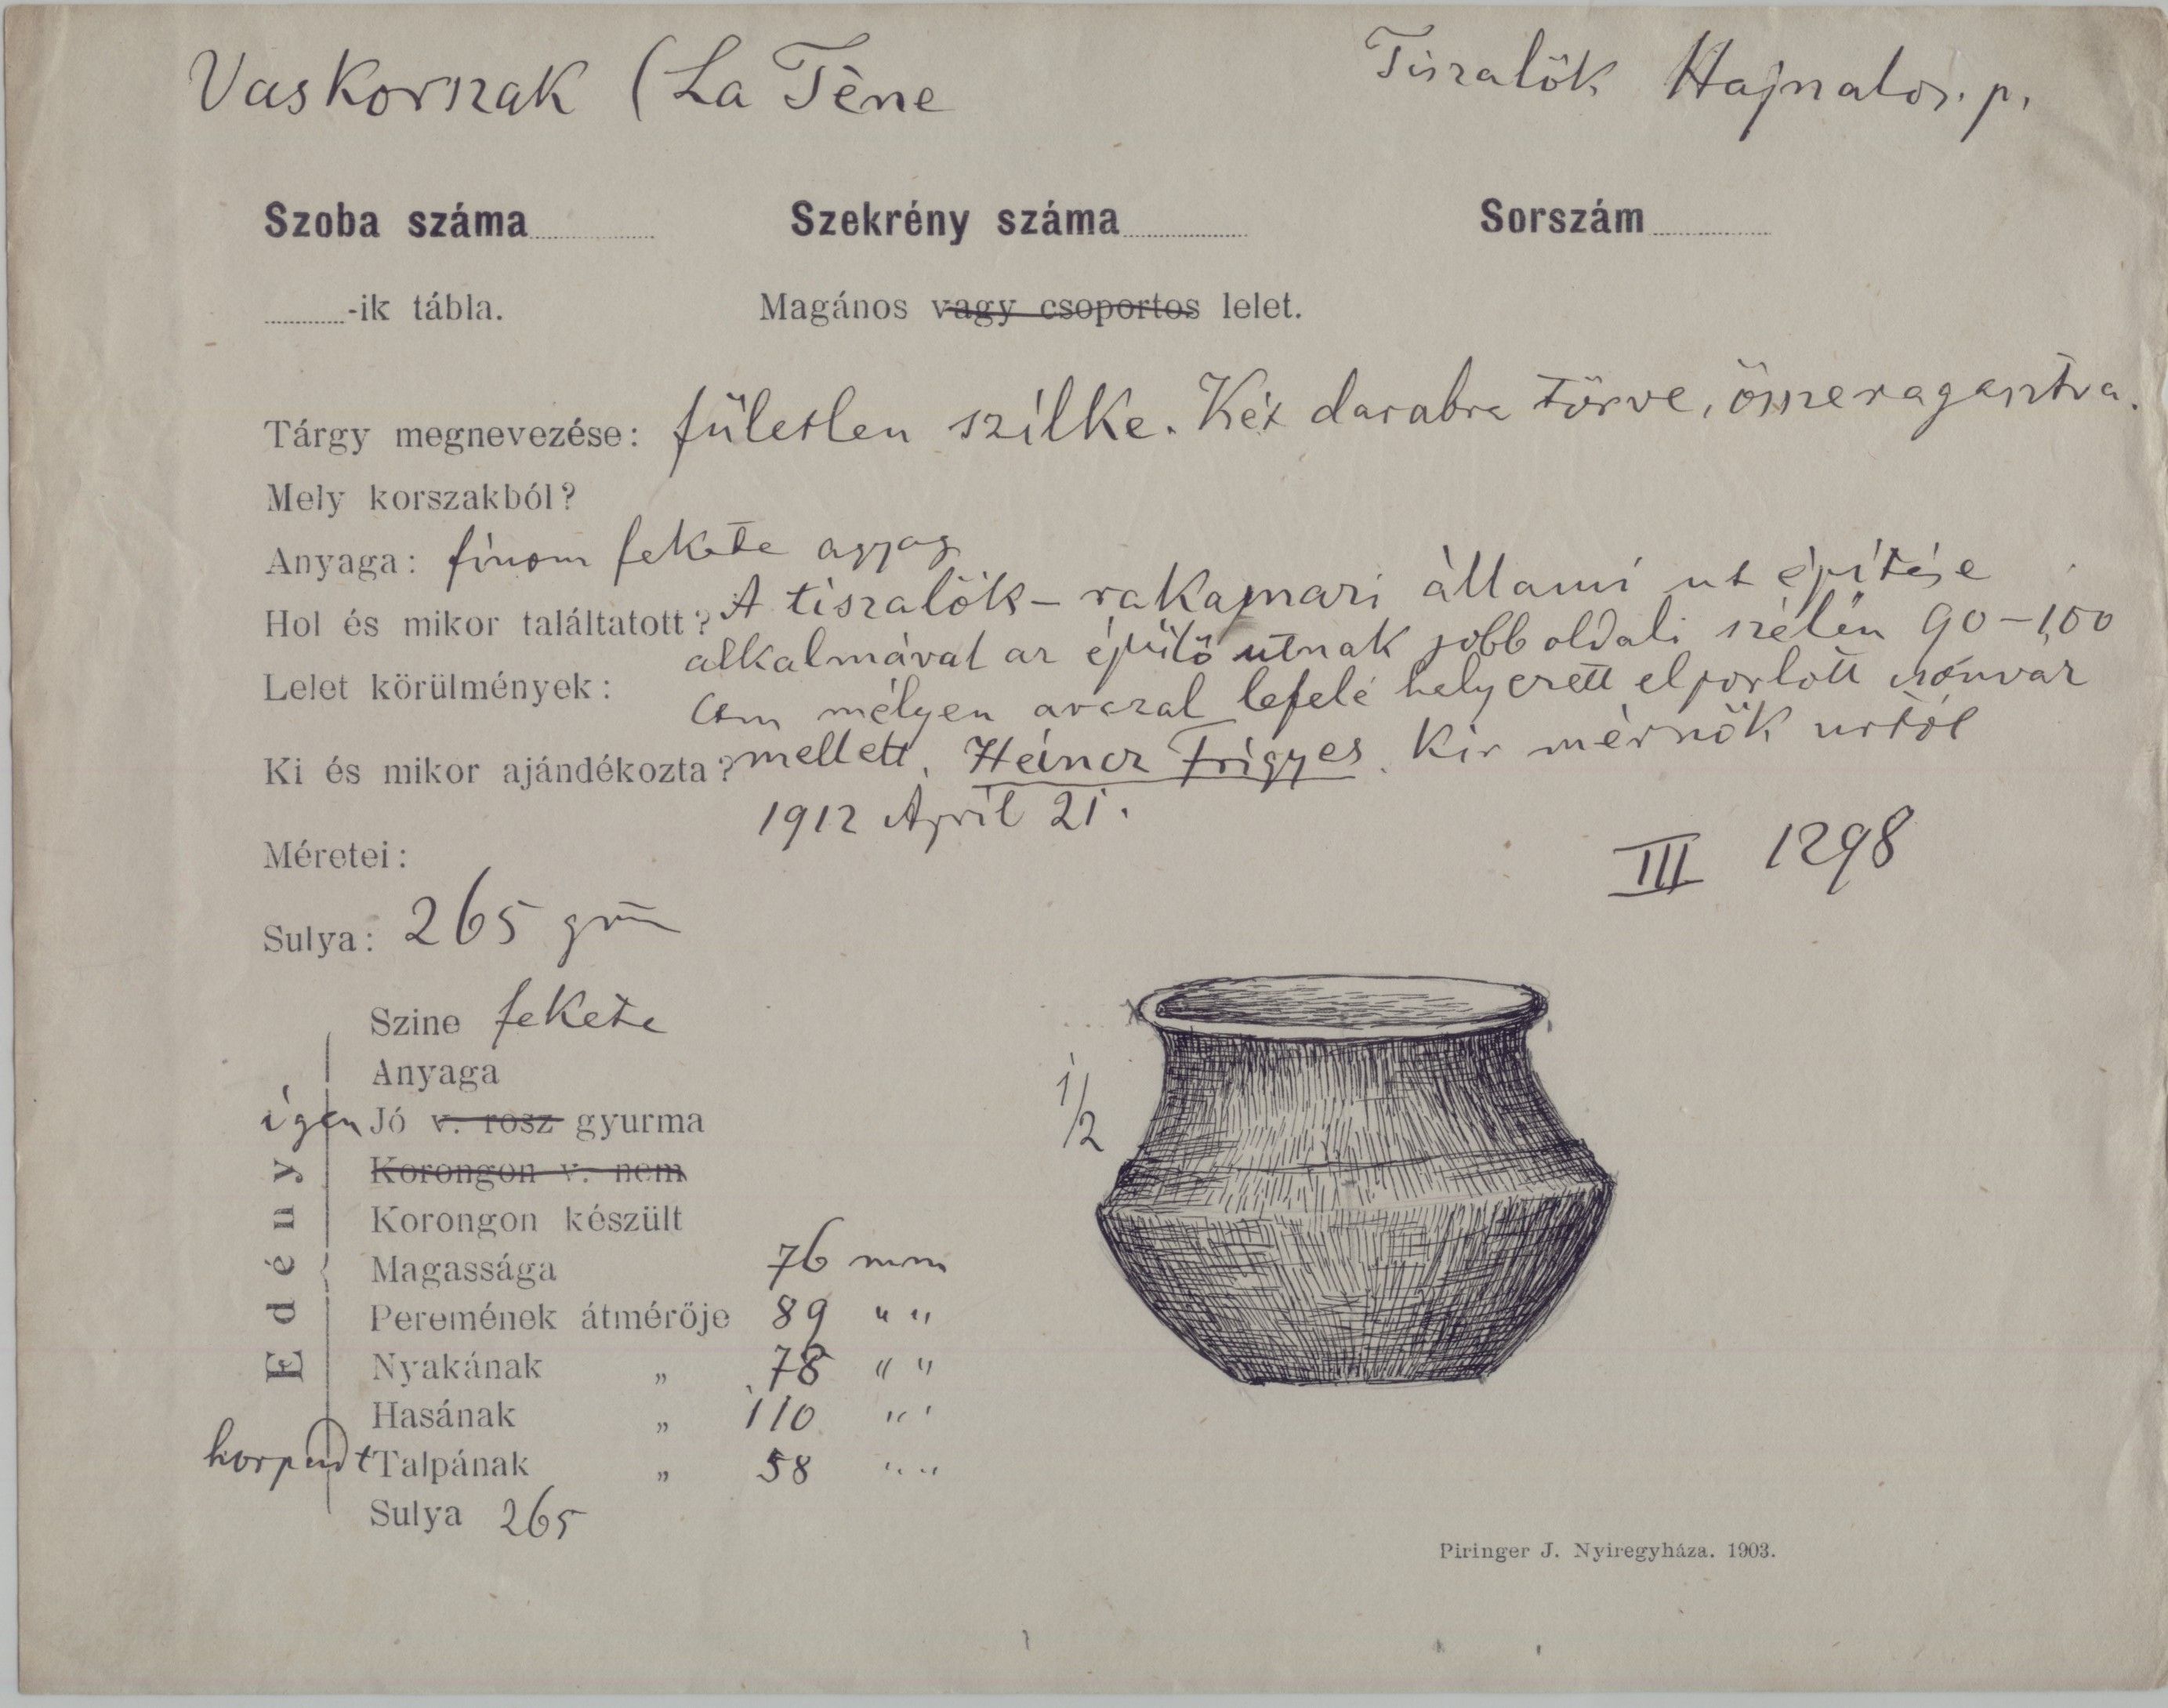 Vaskorszak (La Tène
Tiszalök Hajnalos. p.
Szoba száma
Szekrény száma
Sorszám
-ik tábla.
Magános vagy csoportos lelet.
Tárgy megnevezése: fületlen szilke. Két darabra törve, összeragasztva.
Mely korszakból?
Anyaga: finom fekete agyag
Hol és mikor találtatott? A tiszalök–rakamazi állami ut építése
alkalmával az épülő utnak jobb oldali szélén 90–1,00
Lelet körülmények:
cm mélyen arczal lefelé helyezett elporlott csontváz
Ki és mikor ajándékozta? mellett. Heincz Frigyes. Kir mérnök urtól
1912 April 21.
Méretei:
III 1298
Sulya: 265 gm
Edény
Szine fekete
Anyaga
igen Jó v. rosz gyurma
Korongon v. nem
Korongon készült
1/2
Magassága 76 mm
Peremének átmérője 89 " "
Nyakának „ 78 " "
Hasának „ 110 " "
horpadt Talpának „ 58 " "
Sulya 265
Piringer J. Nyiregyháza. 1903.